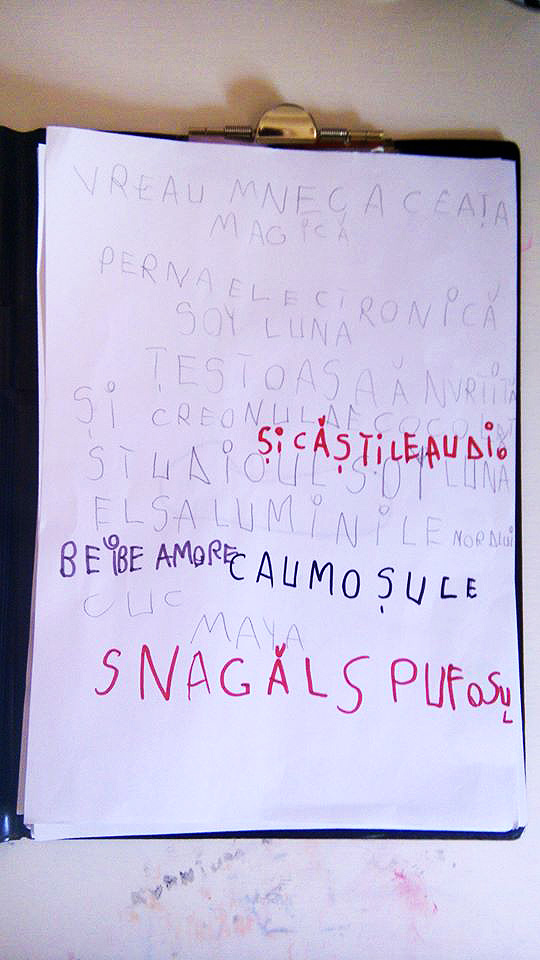 VREAU MNECA CEAȚA
MAGICĂ
PERNA ELECTRONICĂ
SOY LUNA
ȚESTOASA ÃNVRTITĂ
ȘI CREONUL DE COCOLAT
ȘI CĂȘTILE AUDIO
STUDIOUL SOY LUNA
ELSA LUMINILE NORDULUI
BEIBE AMORE CAUMOȘULE
CUC
MAYA
SNAGĂLS PUFOSU